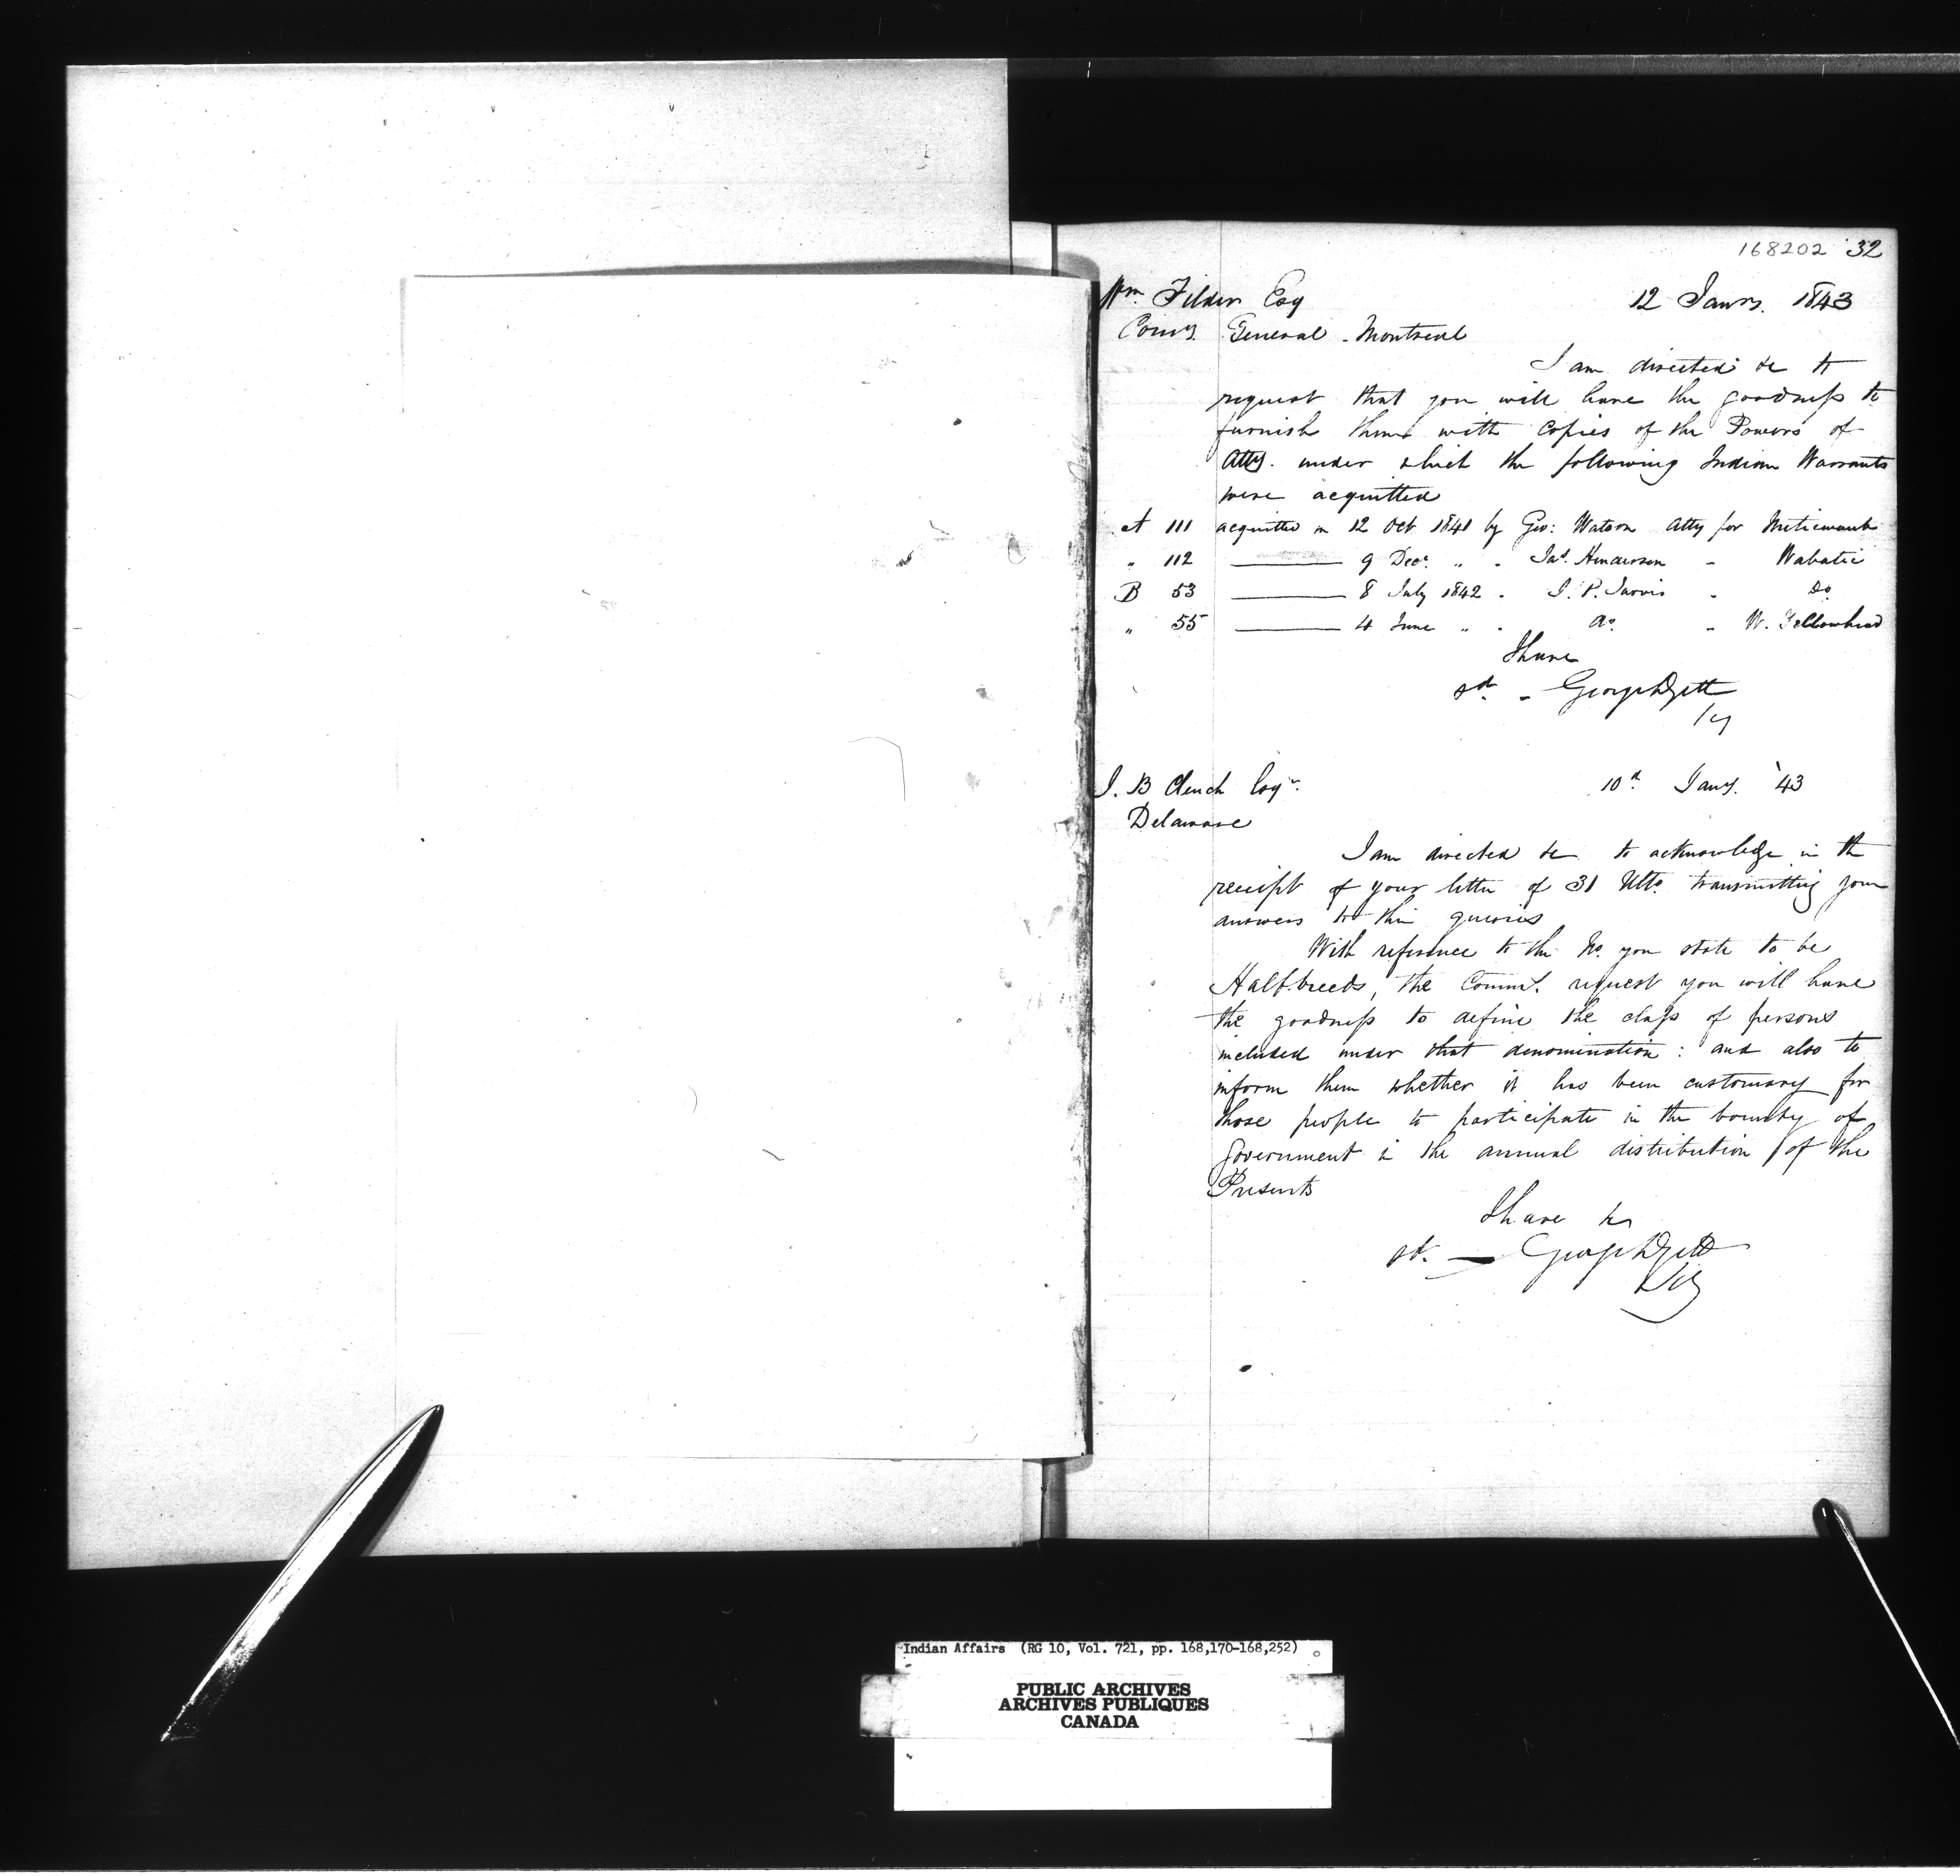 168202 32
Wm. Filder Esq 12 Jany. 1843
Comy. General - Montreal
I am directed &c to
request that you will have the goodness to
furnish them with copies of the Powers of
Atty. under which the following Indian Warrants
were acquitted
A 111 acquitted on 12 Oct 1841 by Geo: Watson Atty for
" 112 9 Decr. " - Jas. Henderson - Wabatic
B 53 8 July 1842 - S. P. Jarvis - Do
" 55 4 June " - Do - W. Yellowhead
I have
sd. - George Dyett
J. B Clench Esqr. 10th Jany. '43
Delaware
I am directed &c to acknowledge in the
receipt of your letter of 31 Ulto. transmitting your
answers to the queries
With reference to the No. you state to be
Half-breeds, the Commrs. request you will have
the goodness to define the class of persons
included under that denomination: and also to
inform them whether it has been customary for
those people to participate in the bounty of
Government in the annual distribution of the
Presents
I have &c
sd. - George Dyett
Secy
Indian Affairs (RG 10, Vol. 721, pp. 168,170-168,252)
PUBLIC ARCHIVES
ARCHIVES PUBLIQUES
CANADA